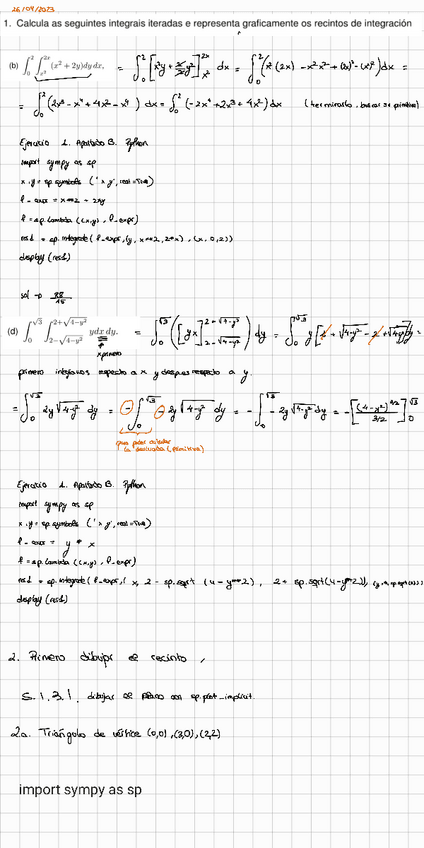 26/04/2023
1. Calcula as seguintes integrais iteradas e representa graficamente os recintos de integración
(b) ∫₀² ∫ₓ²²ˣ (x² + 2y)dy dx, = ∫₀² [x²y + 2/2 y²]ₓ²²ˣ dx = ∫₀² (x²(2x) - x²x² + (2x)² - (x²)²)dx =
= ∫₀² (2x³ - x⁴ + 4x² - x⁴) dx = ∫₀² (-2x⁴ + 2x³ + 4x²)dx
Ejercicio 1. Apartado B. Python
import sympy as sp
x, y = sp.symbols ('x y', real=True)
f_expr = x**2 + 2*y
f = sp.Lambda ((x,y), f_expr)
res1 = sp.integrate (f_expr, (y, x**2, 2*x), (x, 0, 2))
display (res1)
sol →
(d) ∫₀^√3 ∫_{2-√(4-y²)}^{2+√(4-y²)} y dx dy. = ∫₀^√3 ([yx]_{2-√(4-y²)}^{2+√(4-y²)}) dy = ∫₀^√3 y[2 + √(4-y²) - 2 + √(4-y²)]dy =
x primero
primero integramos respecto a x y despues respecto a y
= ∫₀^√3 2y√(4-y²) dy = - ∫₀^√3 - 2y√(4-y²) dy = - ∫₀^√3 - 2y√(4-y²) dy = - [(4-y²)^{3/2} / 3/2]₀^√3
para poder calcular
la derivada (primitiva)
Ejercicio 1. Apartado B. Python
import sympy as sp
x, y = sp.symbols ('x y', real=True)
f_expr = y * x
f = sp.Lambda ((x,y), f_expr)
res1 = sp.integrate (f_expr, ( x, 2 - sp.sqrt (4 - y**2), 2 + sp.sqrt(4-y**2)), (y, 0, sp.sqrt(3)))
display (res1)
2. Primero dibujar el recinto,
5.1.3.1. dibujar el plano con sp.plot_implicit.
2a. Triángulo de vértice (0,0), (3,0), (2,2)
import sympy as sp